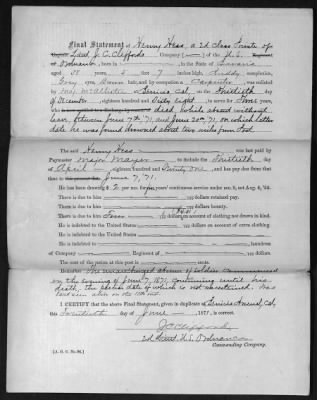 Final Statement of Henry Hess a 2d Class Private of
Lieut. J. C. Clifford's Company ( ) of the U.S.
Ordnance, born in , in the State of Bavaria
aged 28 years, 5 feet 7 inches high, Ruddy complexion,
Grey eyes, Brown hair, and by occupation a Carpenter, was enlisted
by Maj. McAllister at Benicia, Cal. on the Thirtieth day
of December, eighteen hundred and Sixty eight, to serve for Three years,
died, while absent without
leave, between June 7th, '71, and June 20th, '71, on which latter
date he was found drowned about two miles from Post.
The said Henry Hess was last paid by
Paymaster Major Mayer to include the Thirtieth day of
April, eighteen hundred and Seventy one, and has pay due from that
time to June 7, '71.
He has been drawing $2 per mo. for years' continuous service under sec. 2, act Aug. 4, '54.
There is due to him dollars retained pay.
There is due to him dollars bounty.
There is due to him dollars on account of clothing not drawn in kind.
He is indebted to the United States dollars on account of extra clothing.
He is indebted to the United States
He is indebted to , laundress
of Company , Regiment of dollars.
The cost of the ration at this post is cents.
Remarks: The unauthorized absence of soldier commenced
on the evening of June 7, 1871, continuing until his
death, the exact date of which is not ascertained.
I CERTIFY that the above Final Statement, given in duplicate at Benicia Arsenal, Cal,
this Twentieth day of June 1871, is correct.
J C Clifford
2d Lieut. U.S. Ordnance
Commanding Company.
[A. G. O. No. 94.]